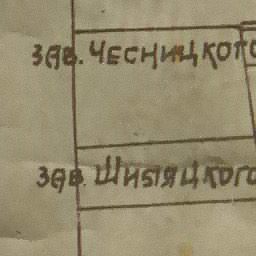 зав. Чесницкого
зав. Шибяцкого